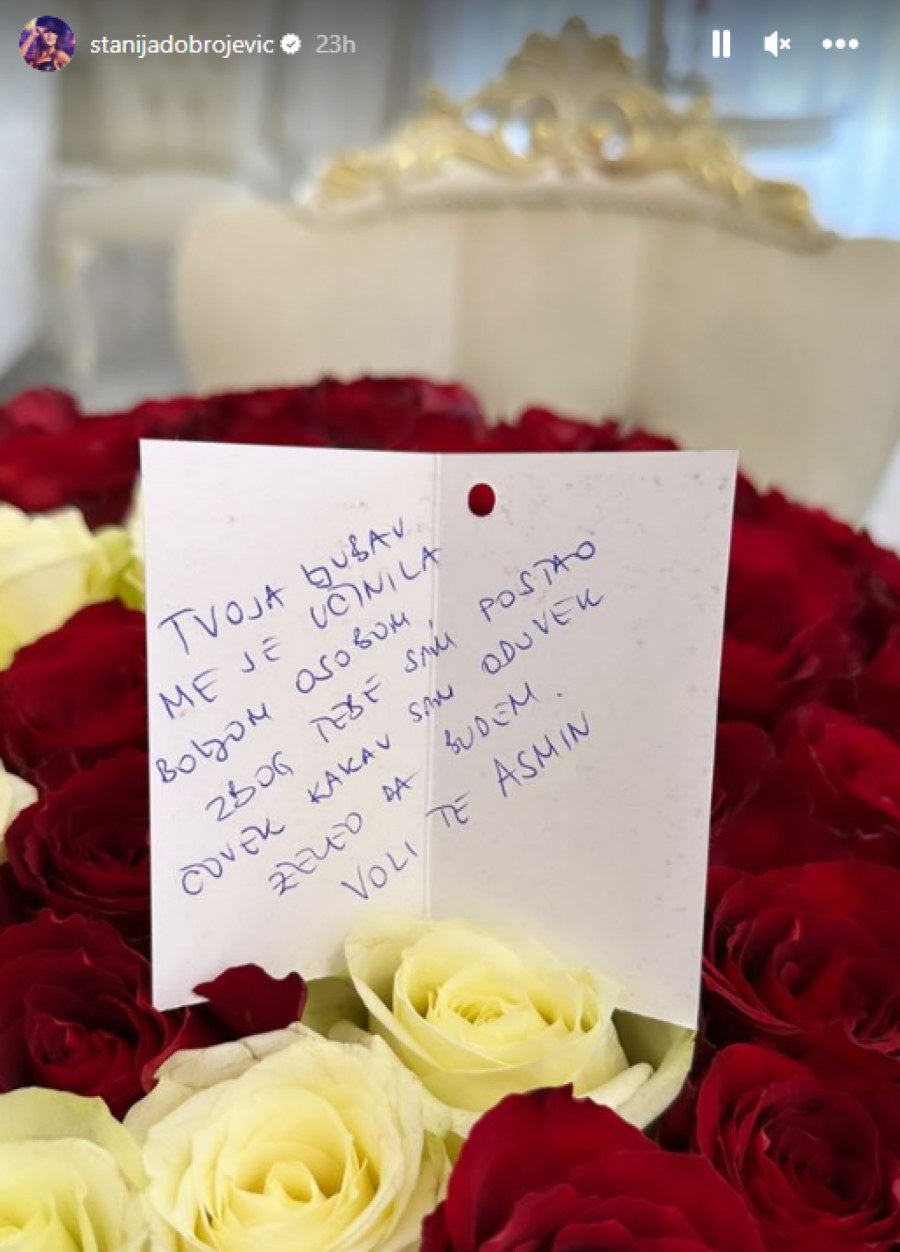 stanijadobrojevic 23h
TVOJA LJUBAV
ME JE UČINILA
BOLJOM OSOBOM,
ZBOG TEBE SAM POSTAO
ČOVEK KAKAV SAM ODUVEK
ŽELEO DA BUDEM.
VOLI TE ASMIN